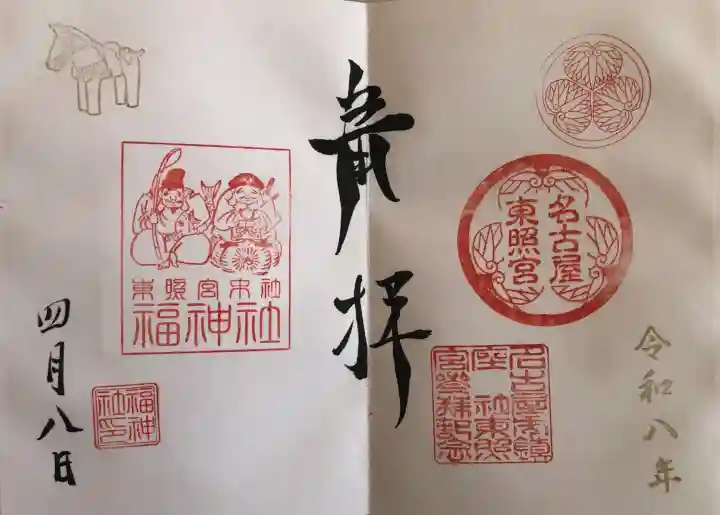 令和八年
名古屋
東照宮
名古屋市鎮
座 社東照
宮参拝記念
奉拝
東照宮末社
福神社
福神
社印
四月八日